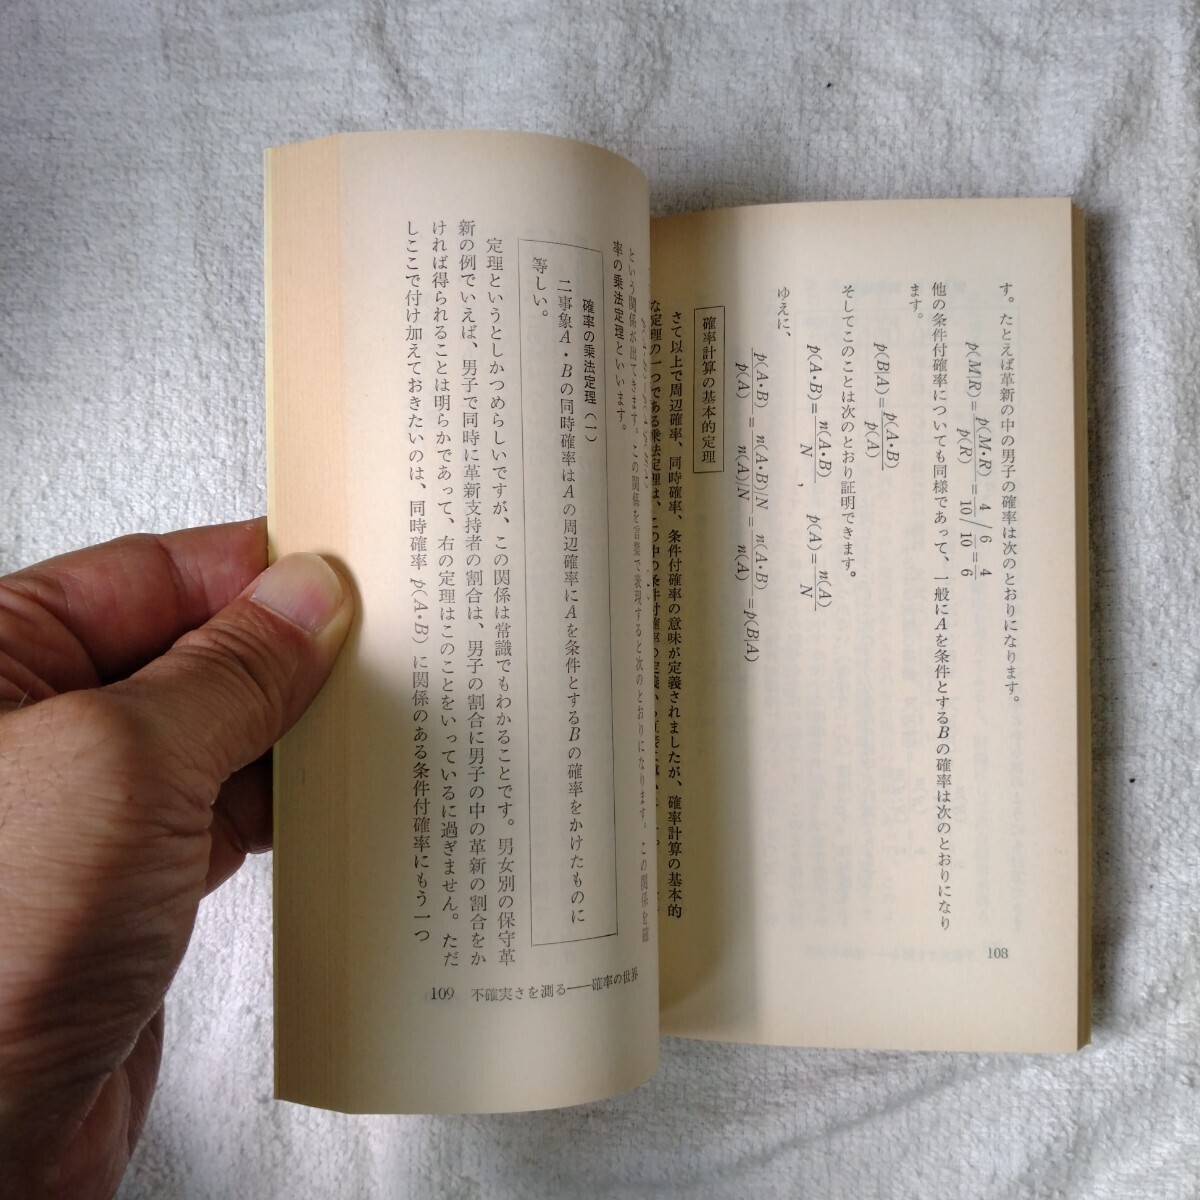 す。たとえば革新の中の男子の確率は次のとおりになります。
p(M|R)=p(M・R)/p(R)=4/10/6/10=4/6
他の条件付確率についても同様であって、一般にAを条件とするBの確率は次のとおりになり
ます。
p(B|A)=p(A・B)/p(A)
そしてこのことは次のとおり証明できます。
p(A・B)=n(A・B)/N, p(A)=n(A)/N
ゆえに、
p(A・B)/p(A)=n(A・B)/N/n(A)/N=n(A・B)/n(A)=p(B|A)
確率計算の基本的定理
さて以上で周辺確率、同時確率、条件付確率の意味が定義されましたが、確率計算の基本的
な定理の一つである乗法定理は、この中の条件付確率の定義から
108
という関係が出てきます。この関係を言葉で表現すると次のとおりになります。この関係を確
率の乗法定理といいます。
確率の乗法定理(一)
二事象A・Bの同時確率はAの周辺確率にAを条件とするBの確率をかけたものに
等しい。
定理というとしかつめらしいですが、この関係は常識でもわかることです。男女別の保守革
新の例でいえば、男子で同時に革新支持者の割合は、男子の割合に男子の中の革新の割合をか
ければ得られることは明らかであって、右の定理はこのことをいっているに過ぎません。ただ
しここで付け加えておきたいのは、同時確率 p(A・B) に関係のある条件付確率にもう一つ
109 不確実さを測る——確率の世界